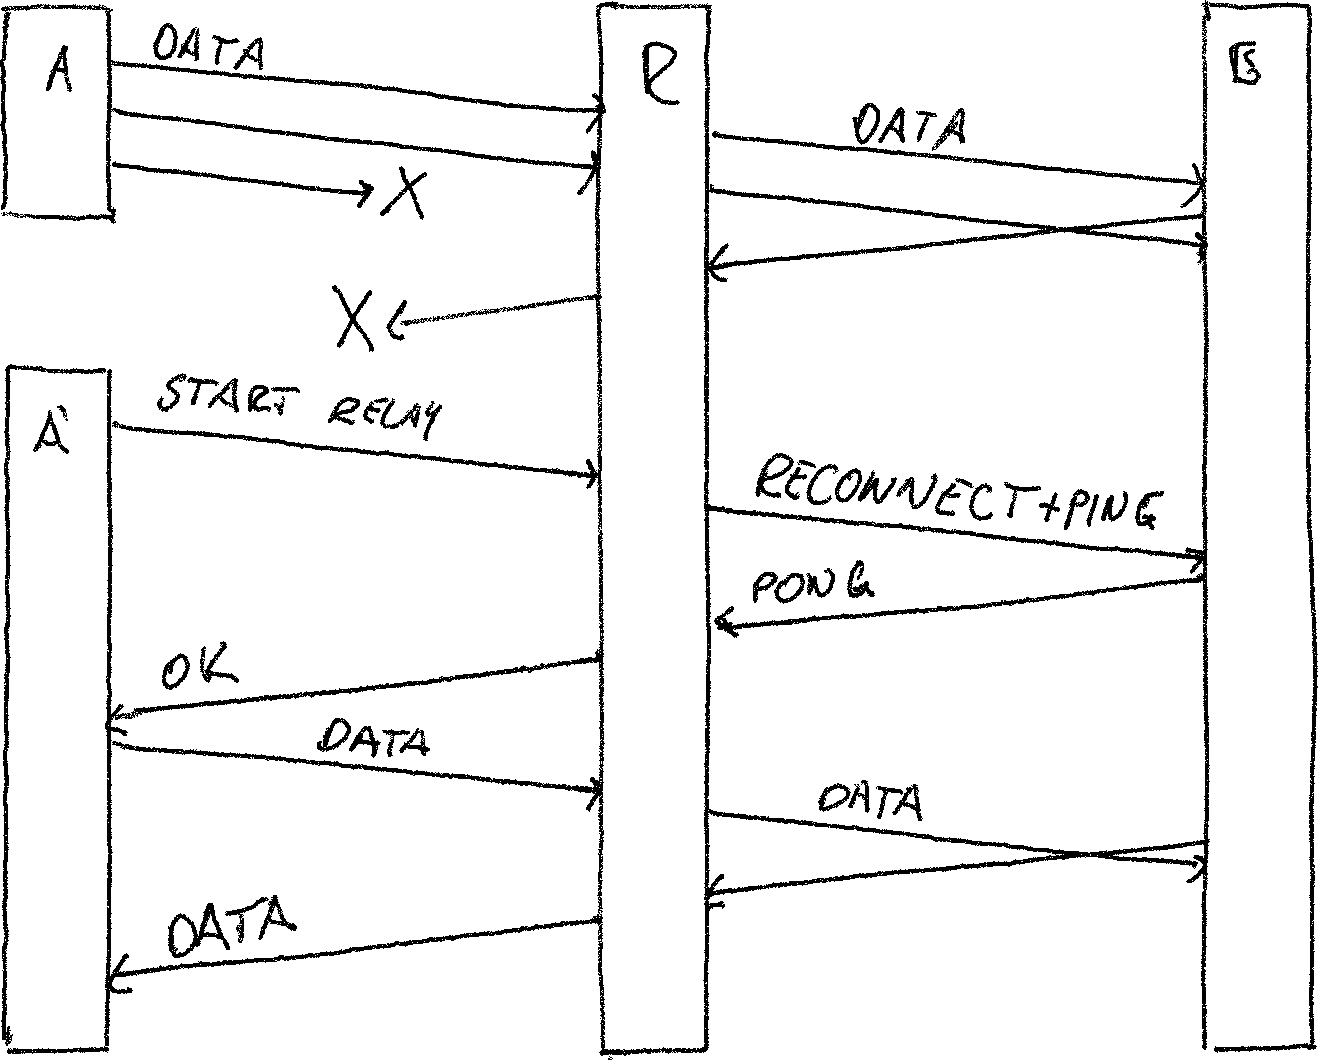 A
DATA
R
B
DATA
X
X
A'
START RELAY
RECONNECT+PING
PONG
OK
DATA
DATA
DATA